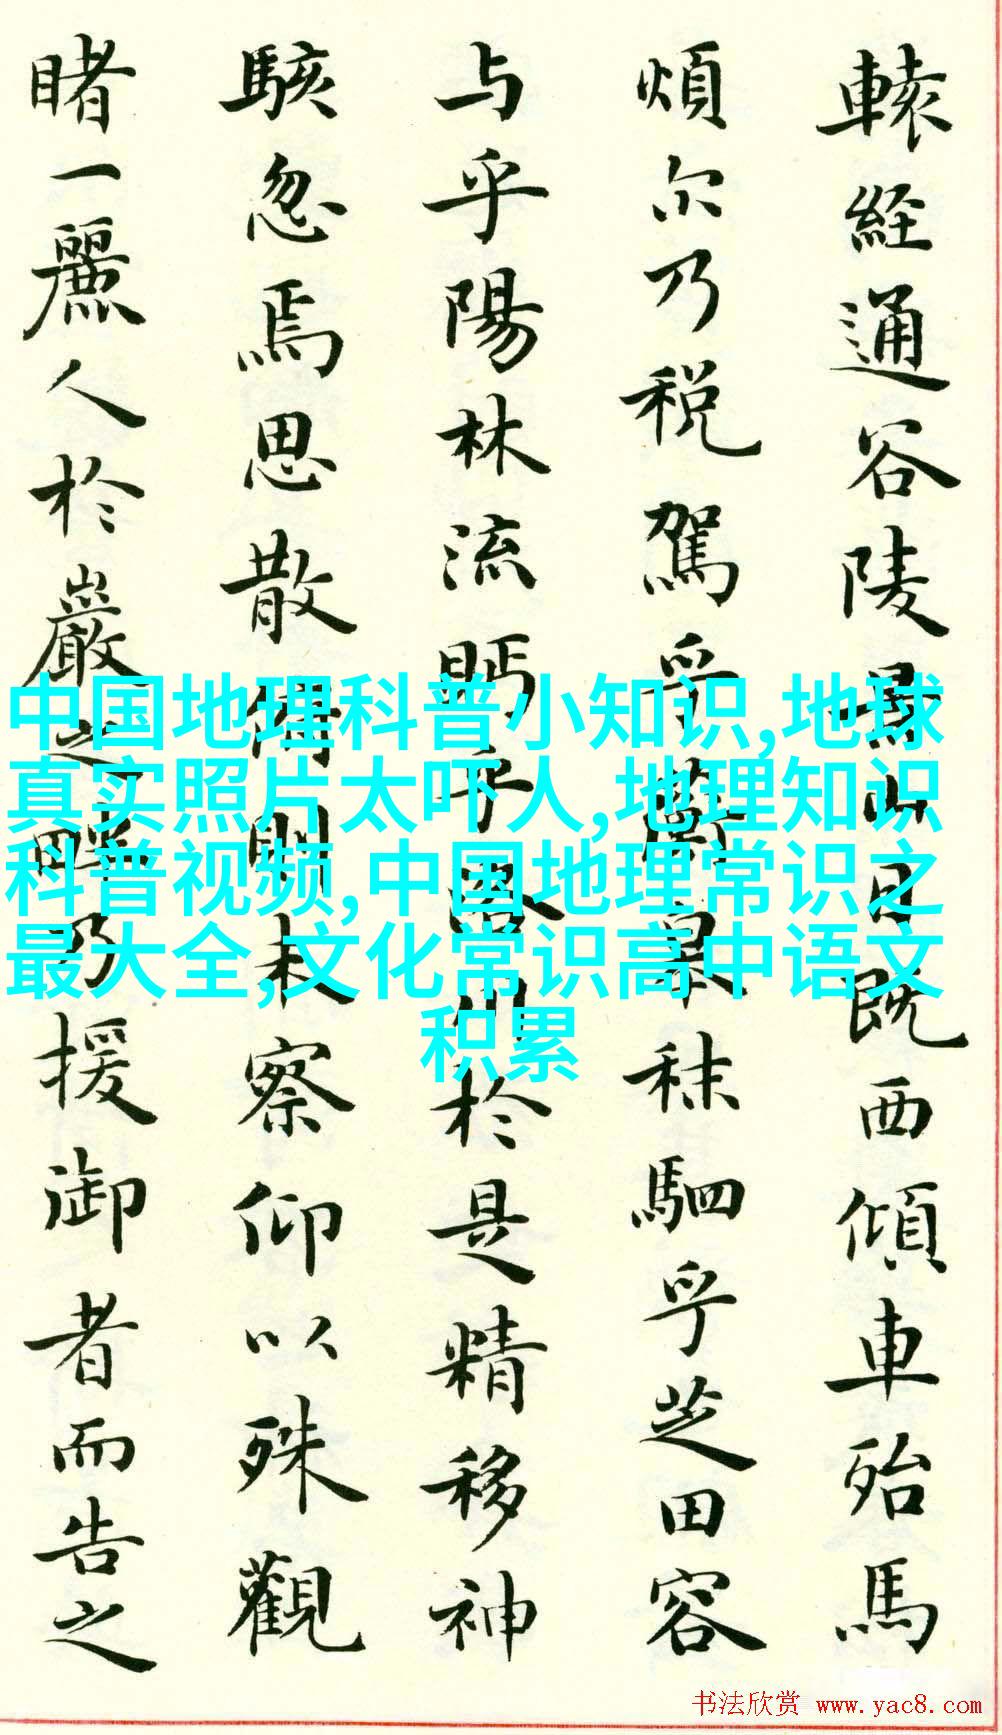 轅経通谷陵景山日既西傾車殆馬
煩尔乃税駕乎蘅皋秣駟乎芝田容
与乎陽林流眄乎洛川於是精移神
駭忽焉思散俯則未察仰以殊觀
睹一麗人於巖之畔乃援御者而告之
中国地理科普小知识,地球
真实照片太吓人,地理知识
科普视频,中国地理常识之
最大全,文化常识高中语文
积累
书法欣赏 www.yac8.com